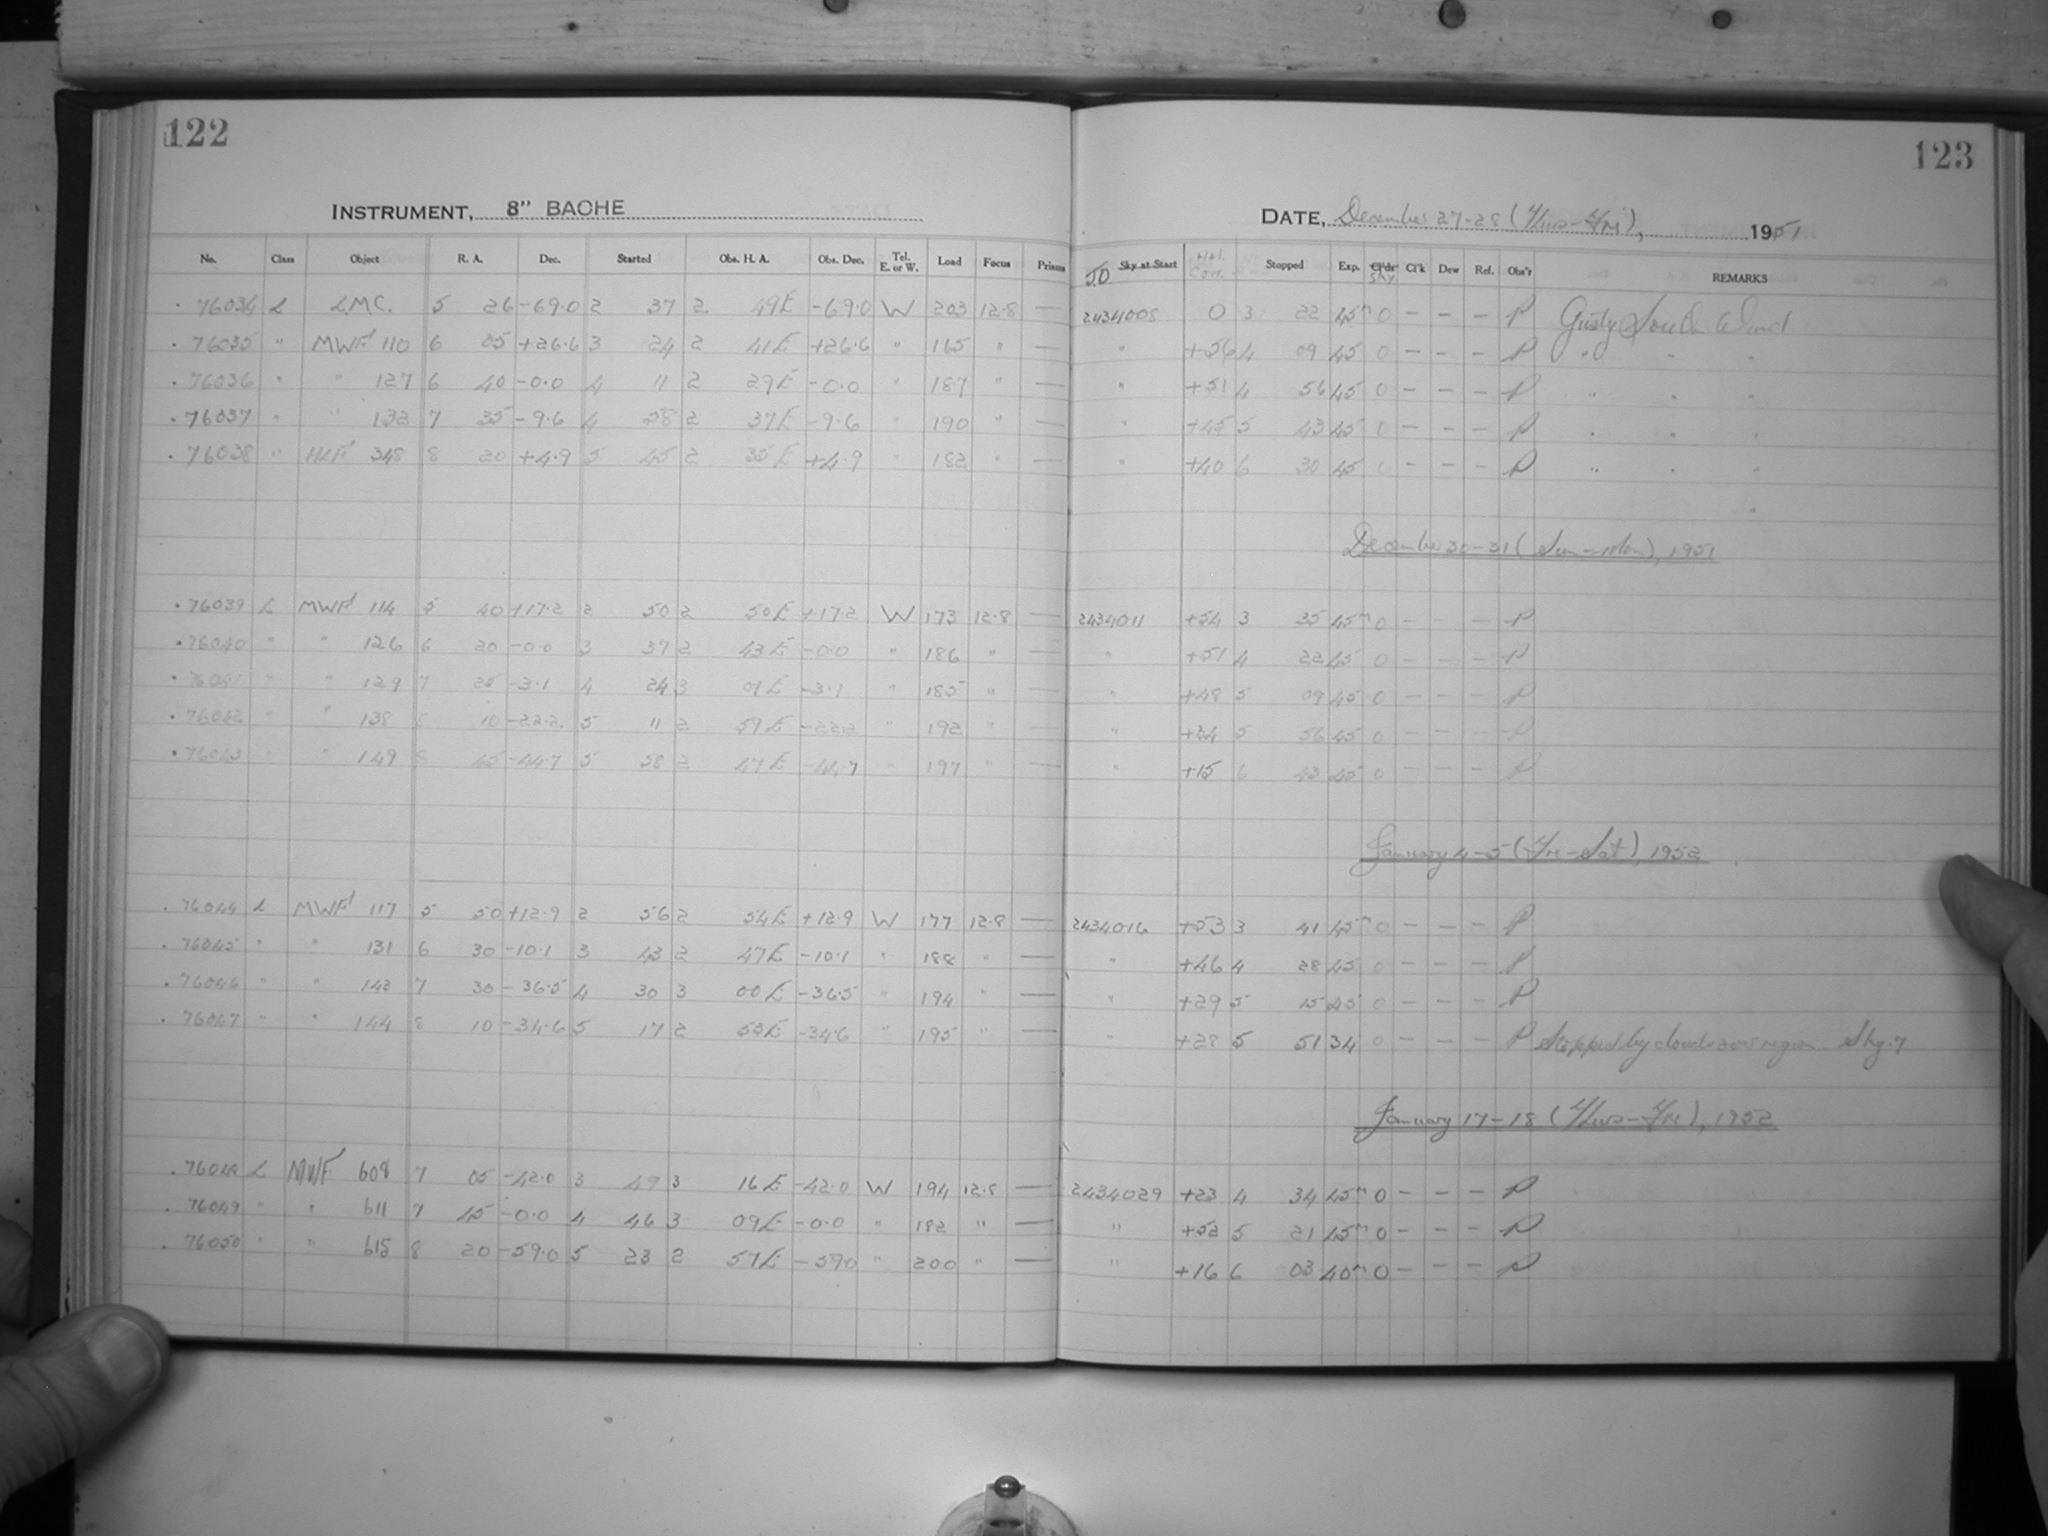 122
INSTRUMENT, 8" BACHE
No. Class Object R. A. Dec. Started Obs. H. A. Obs. Dec. Tel. E. or W. Load Focus Prisms
76034 L LMC. 5 26 -69.0 2 37 2 49E -69.0 W 203 12.8 —
76035 " MWF 110 6 05 +26.6 3 24 2 41E +26.6 " 165 " —
76036 " " 127 6 40 -0.0 4 11 2 29E -0.0 " 187 " —
76037 " " 132 7 35 -9.6 4 58 2 37E -9.6 " 190 " —
76038 " 348 8 20 +4.9 5 45 2 35E +4.9 " 182 " —
76039 L MWF 114 5 40 +17.2 2 50 2 50E +17.2 W 173 12.8 —
76040 " " 126 6 20 -0.0 3 37 2 43E -0.0 " 186 " —
76041 " " 129 7 25 -3.1 4 24 3 01E -3.1 " 185 " —
76042 " " 138 8 10 -22.2 5 11 2 59E -22.2 " 192 " —
76043 " " 149 8 45 -44.7 5 58 2 47E -44.7 " 197 " —
76044 L MWF 117 5 50 +12.9 2 56 2 54E +12.9 W 177 12.8 —
76045 " " 131 6 30 -10.1 3 43 2 47E -10.1 " 188 " —
76046 " " 143 7 30 -36.5 4 30 3 00E -36.5 " 194 " —
76047 " " 144 8 10 -34.6 5 17 2 53E -34.6 " 195 " —
76048 L MWF 608 7 05 -42.0 3 49 3 16E -42.0 W 194 12.8 —
76049 " " 611 7 45 -0.0 4 46 3 09E -0.0 " 182 " —
76050 " " 615 8 20 -59.0 5 23 2 57E -59.0 " 200 " —
123
DATE, December 27-28 (Thurs-Fri), 1951
JD Sky at Start Corr. Stopped Exp. Sky Cl'k Dew Ref. Obs'r REMARKS
2434008 0 3 22 45m 0 — — — P Gusty South Wind
" +56 4 09 45 0 — — — P " " "
" +51 4 56 45 0 — — — P " " "
" +45 5 43 45 0 — — — P " " "
" +40 6 30 45 0 — — — P " " "
December 30-31 (Sun-Mon), 1951
2434011 +54 3 35 45m 0 — — — P
" +51 4 22 45 0 — — — P
" +48 5 09 45 0 — — — P
" +34 5 56 45 0 — — — P
" +15 6 43 45 0 — — — P
January 4-5 (Fri-Sat), 1952
2434016 +53 3 41 45m 0 — — — P
" +46 4 28 45 0 — — — P
" +29 5 15 45 0 — — — P
" +28 5 51 34 0 — — — P Stopped by clouds over region. Sky 7
January 17-18 (Thurs-Fri), 1952
2434029 +23 4 34 45m 0 — — — P
" +52 5 21 45m 0 — — — P
" +16 6 03 40m 0 — — — P